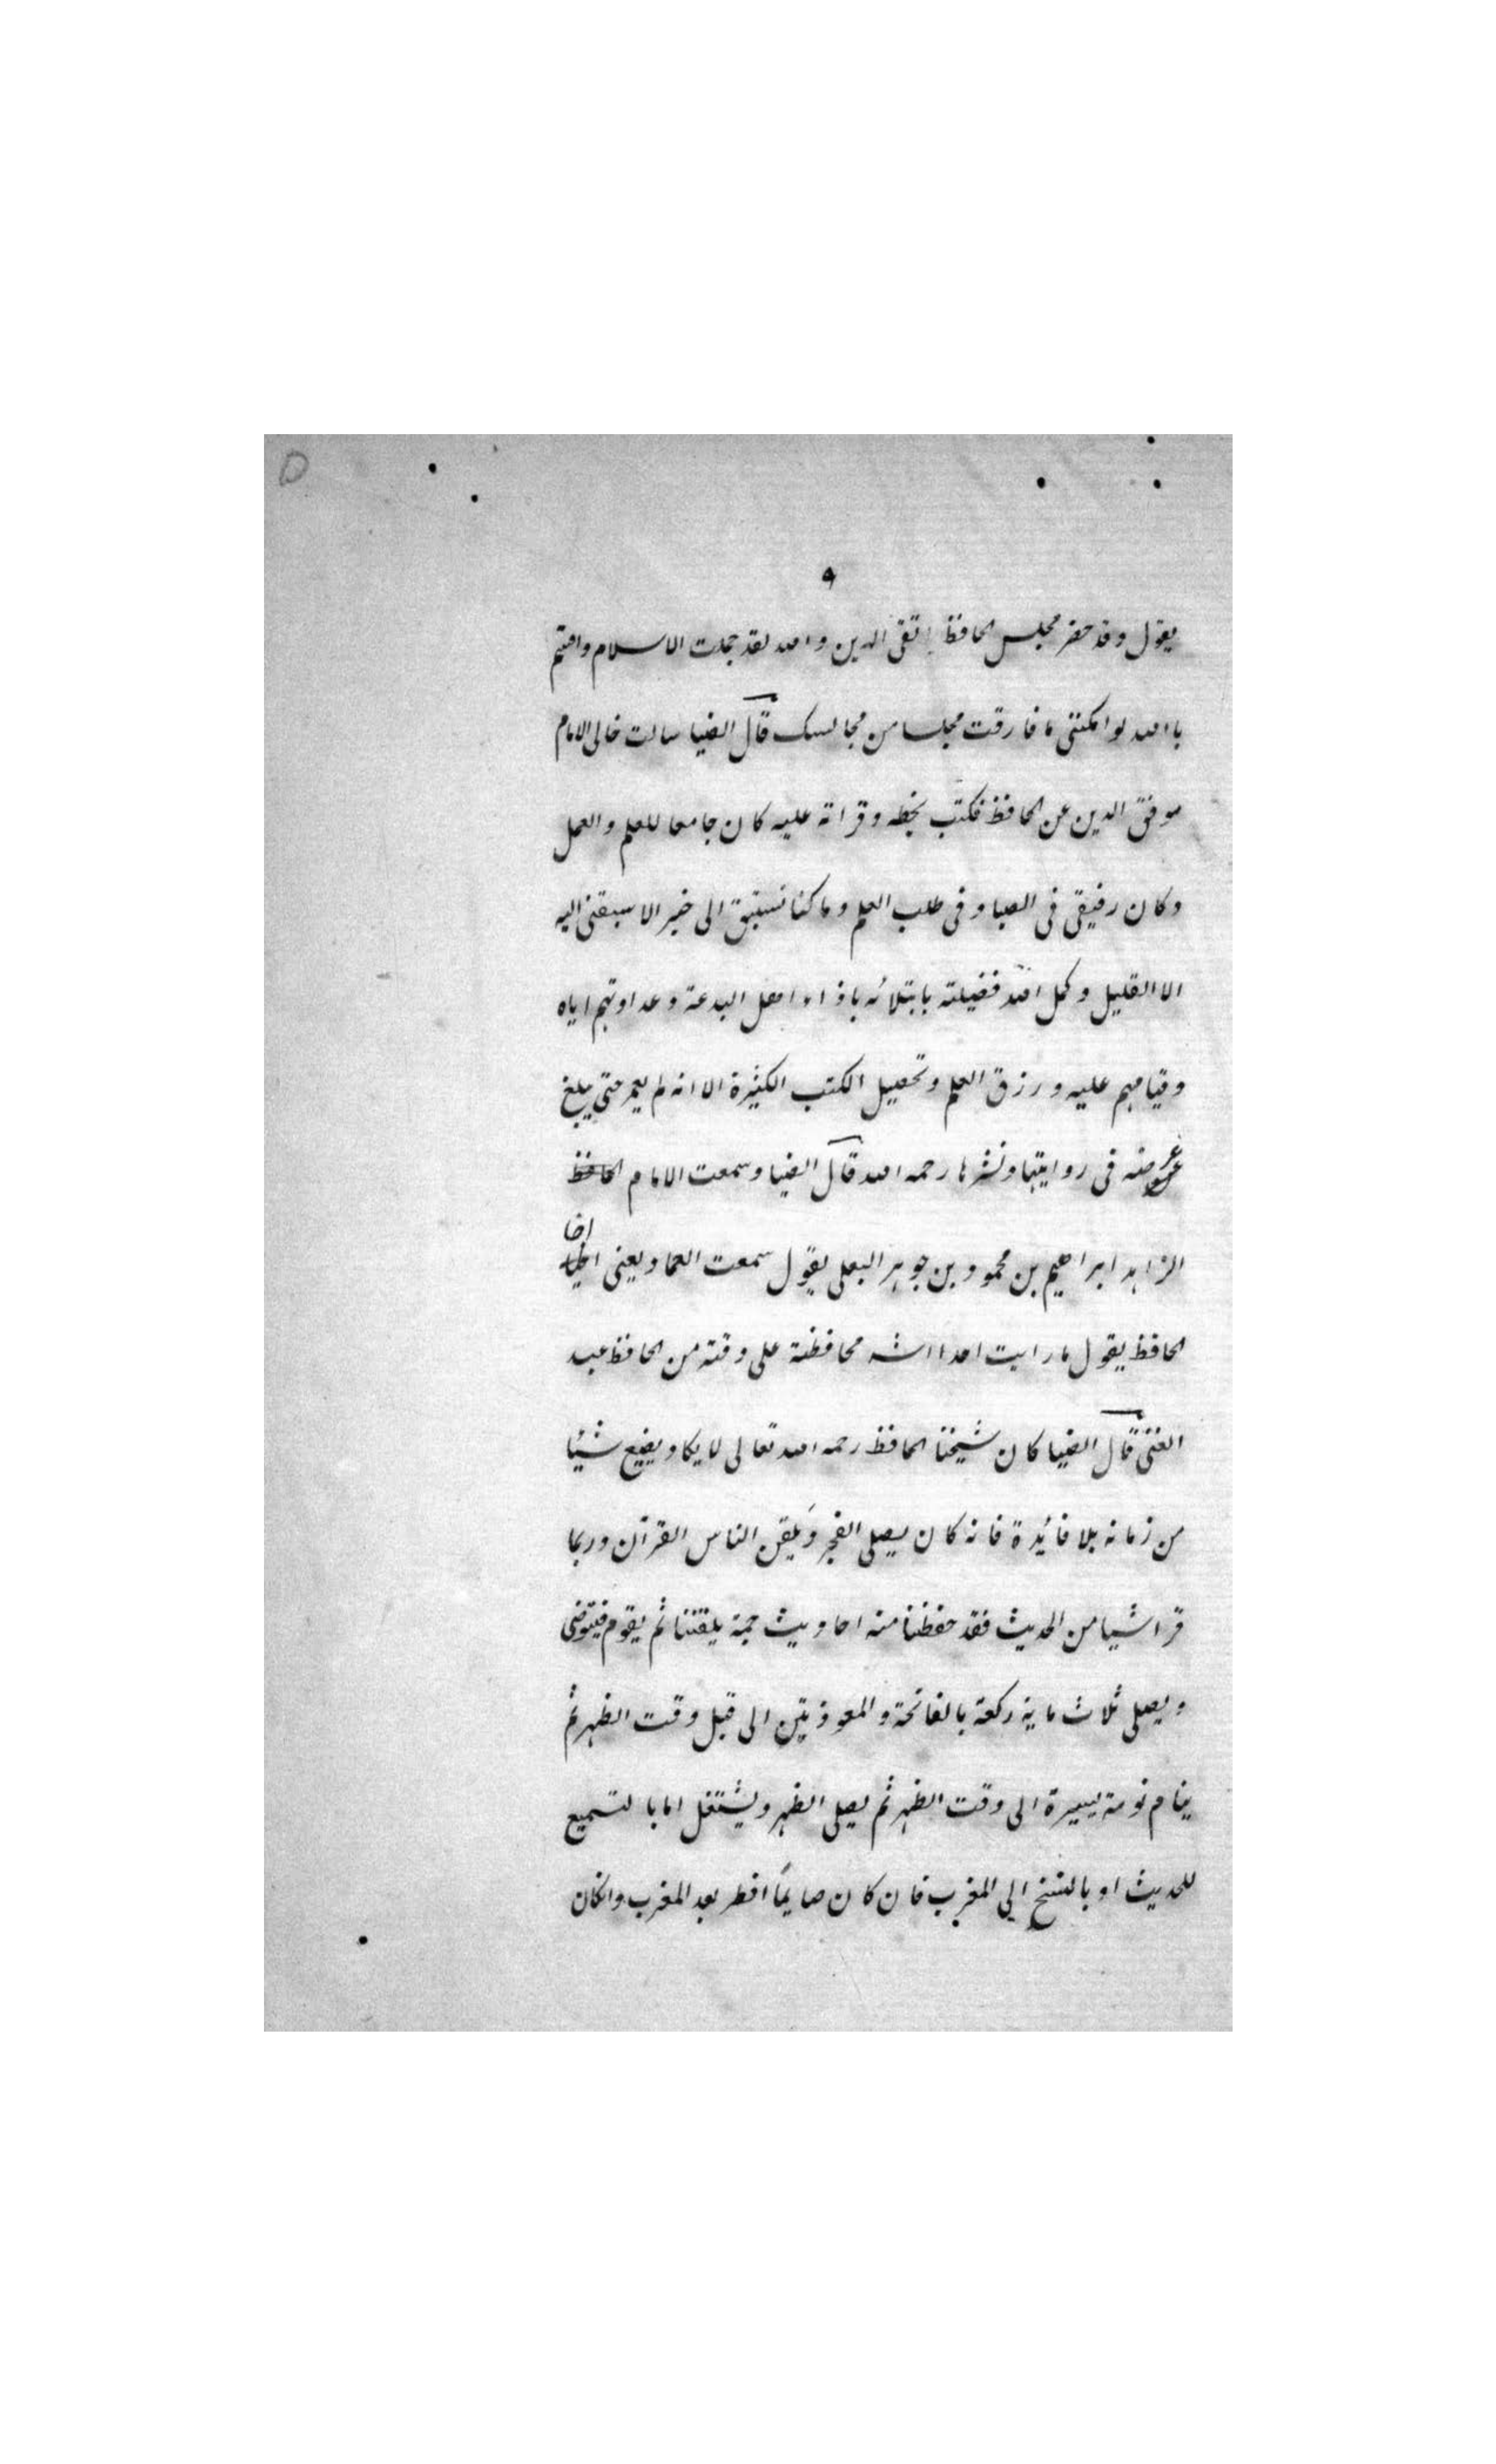 ٩
يقول وقد حضر مجلس الحافظ يا تقى الدين والله لقد جملت الاسلام واقسم
باالله لو امكننى ما فارقت مجلسا من مجالسك قال الضيا سالت خالى الامام
موفق الدين عن الحافظ فكتب بخطه وقراته عليه كان جامعا للعلم والعمل
وكان رفيقى فى الصبا وفى طلب العلم وما كنا نستبق الى خير الا سبقنى اليه
الا القليل وكمل الله فضيلته بابتلائه باذاء اهل البدعة وعداوتهم اياه
وقيامهم عليه ورزق العلم وتحصيل الكتب الكثيرة الا انه لم يعمر حتى يبلغ
غرضه فى روايتها ونشرها رحمه الله قال الضيا وسمعت الامام الحافظ
الزاهد ابراهيم بن محمود بن جوهر البعلى يقول سمعت العماد يعنى اخا
الحافظ يقول ما رايت احدا اشد محافظة على وقته من الحافظ عبد
الغنى قال الضيا كان شيخنا الحافظ رحمه الله تعالى لا يكاد يضيع شيئا
من زمانه بلا فائدة فانه كان يصلى الفجر ويلقن الناس القرآن وربما
قرا شيا من الحديث فقد حفظنا منه احاديث جمة يلقننا ثم يقوم فيتوضى
ويصلى ثلاث ماية ركعة بالفاتحة والمعوذتين الى قبل وقت الظهر ثم
ينام نومة يسيرة الى وقت الظهر ثم يصلى الظهر ويشتغل اما با لتسميع
للحديث او بالنسخ الى المغرب فان كان صايما افطر بعد المغرب وانكان